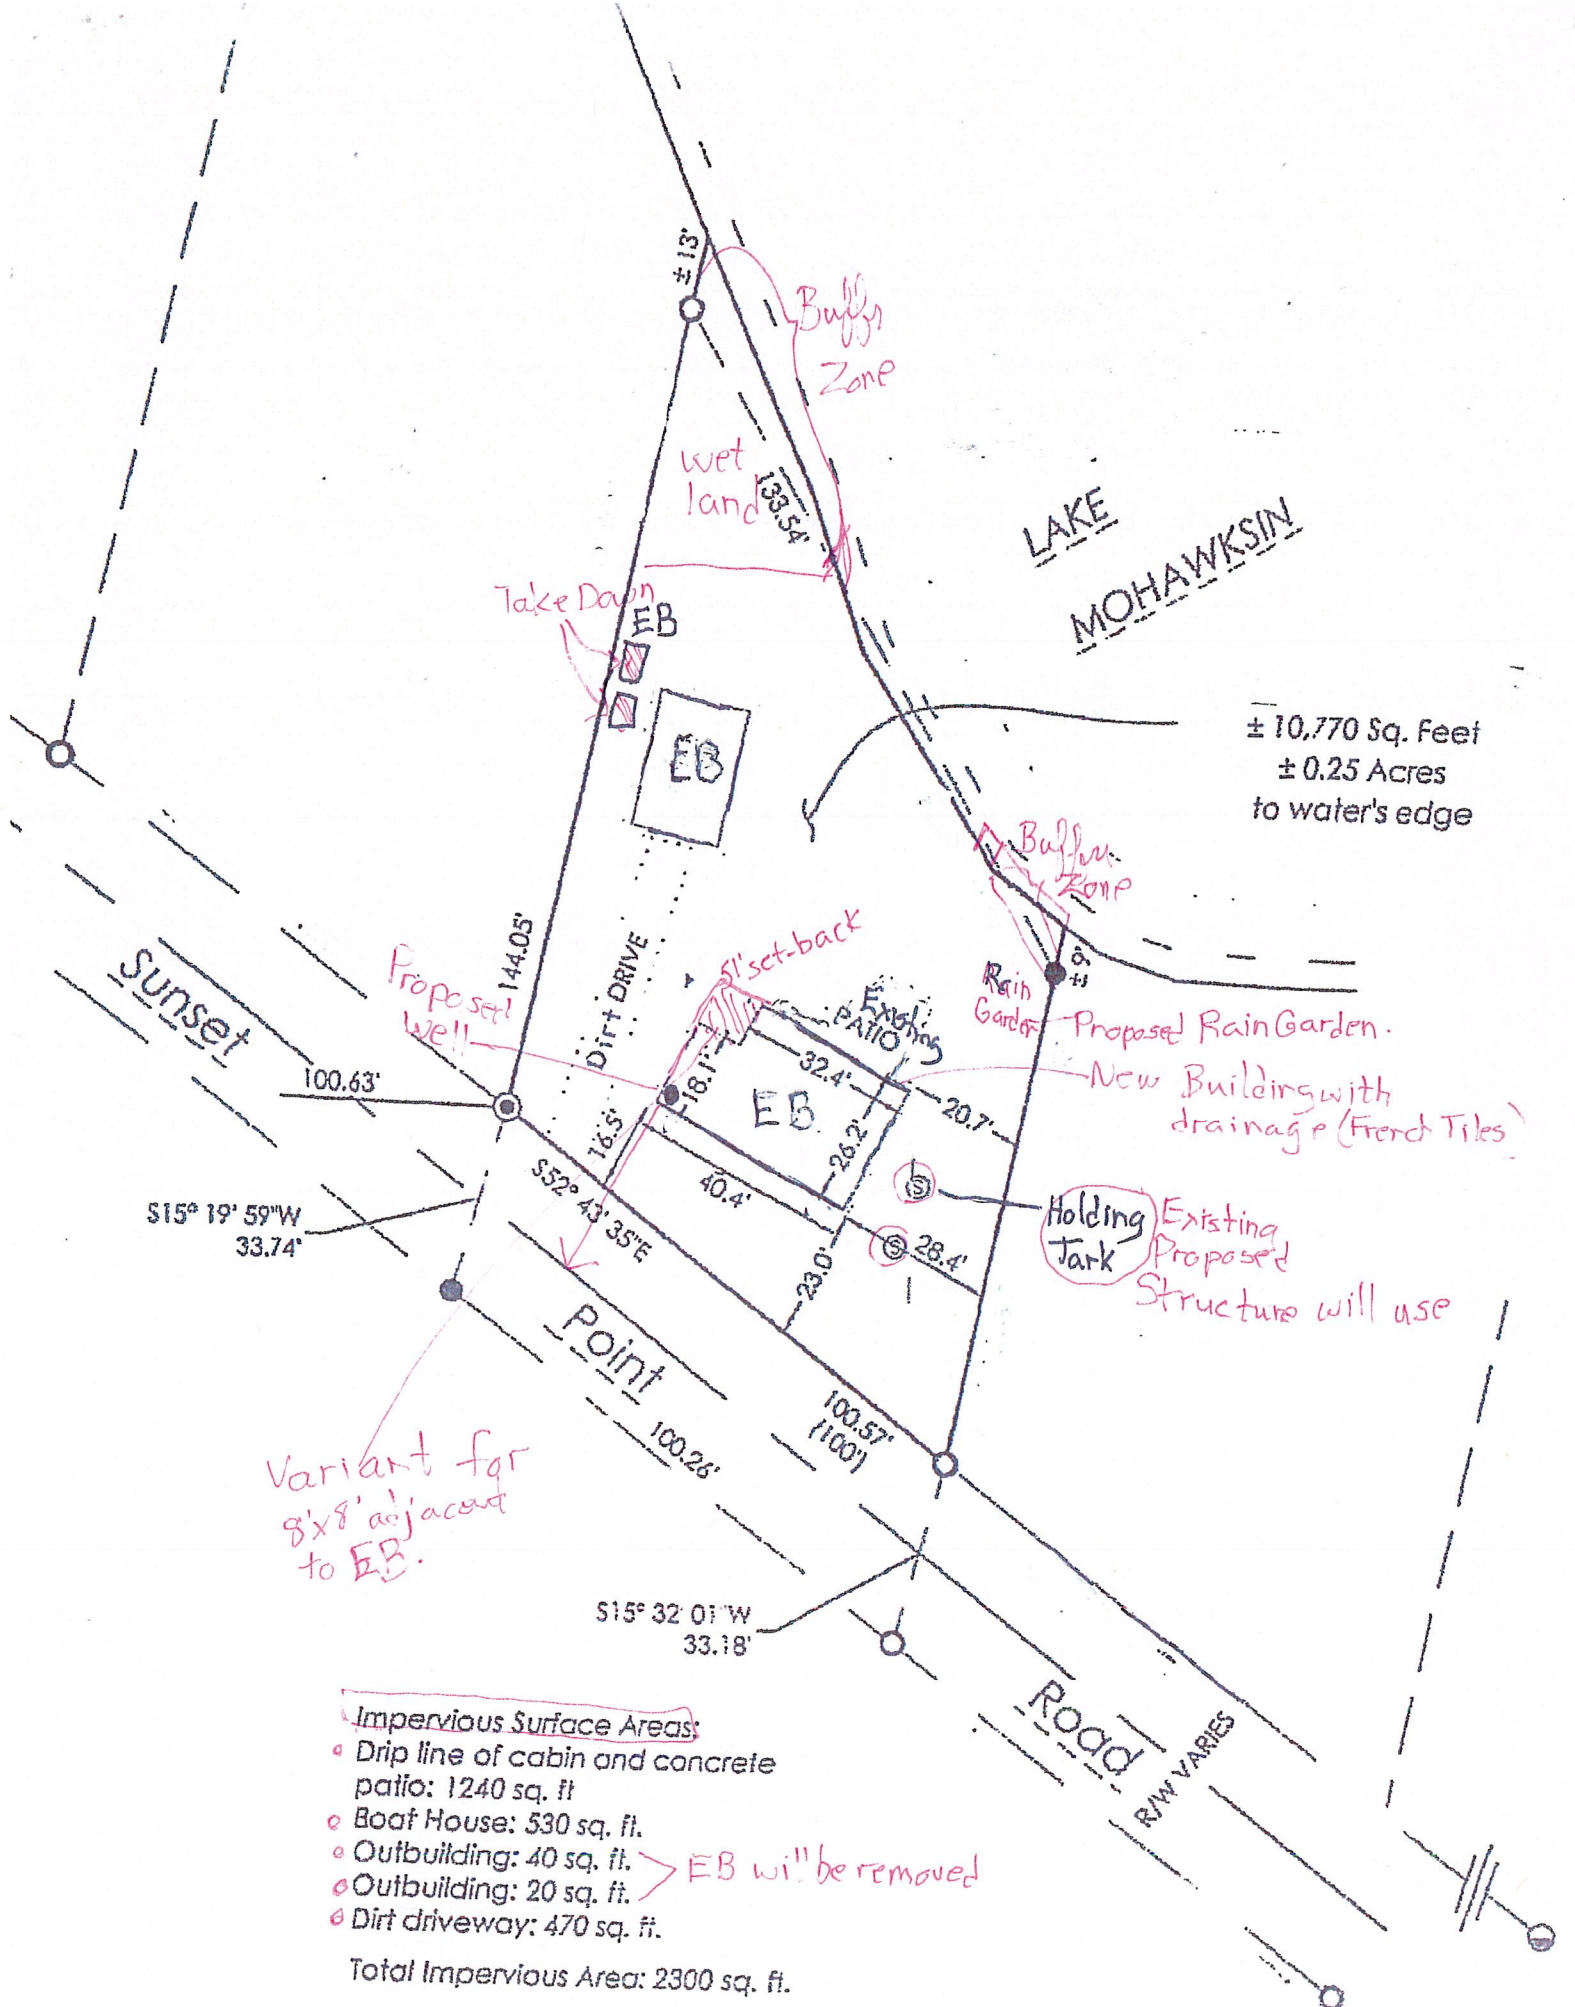 ± 13'
Buffr
Zone
wet
land
133.54'
LAKE
MOHAWKSIN
Take Down
EB
EB
± 10,770 Sq. Feet
± 0.25 Acres
to water's edge
Buffer
Zone
144.05'
Sunset
Proposed
Well
Dirt DRIVE
51' set-back
Existing
PATIO
Rain
Garden
± 9'
Proposed Rain Garden.
New Building with
drainage (French Tiles)
100.63'
18.1'
32.4'
EB
20.7'
16.5'
26.2'
40.4'
S52° 43' 35"E
S15° 19' 59"W
33.74'
S
S
28.4'
23.0'
Holding
Tank
Existing
Proposed
Structure will use
Point
100.26'
100.57'
(100')
Variant for
8'x8' adjacent
to EB.
S15° 32' 01"W
33.18'
Road
R/W VARIES
Impervious Surface Areas:
Drip line of cabin and concrete
patio: 1240 sq. ft
Boat House: 530 sq. ft.
Outbuilding: 40 sq. ft.
Outbuilding: 20 sq. ft.
EB will be removed
Dirt driveway: 470 sq. ft.
Total Impervious Area: 2300 sq. ft.